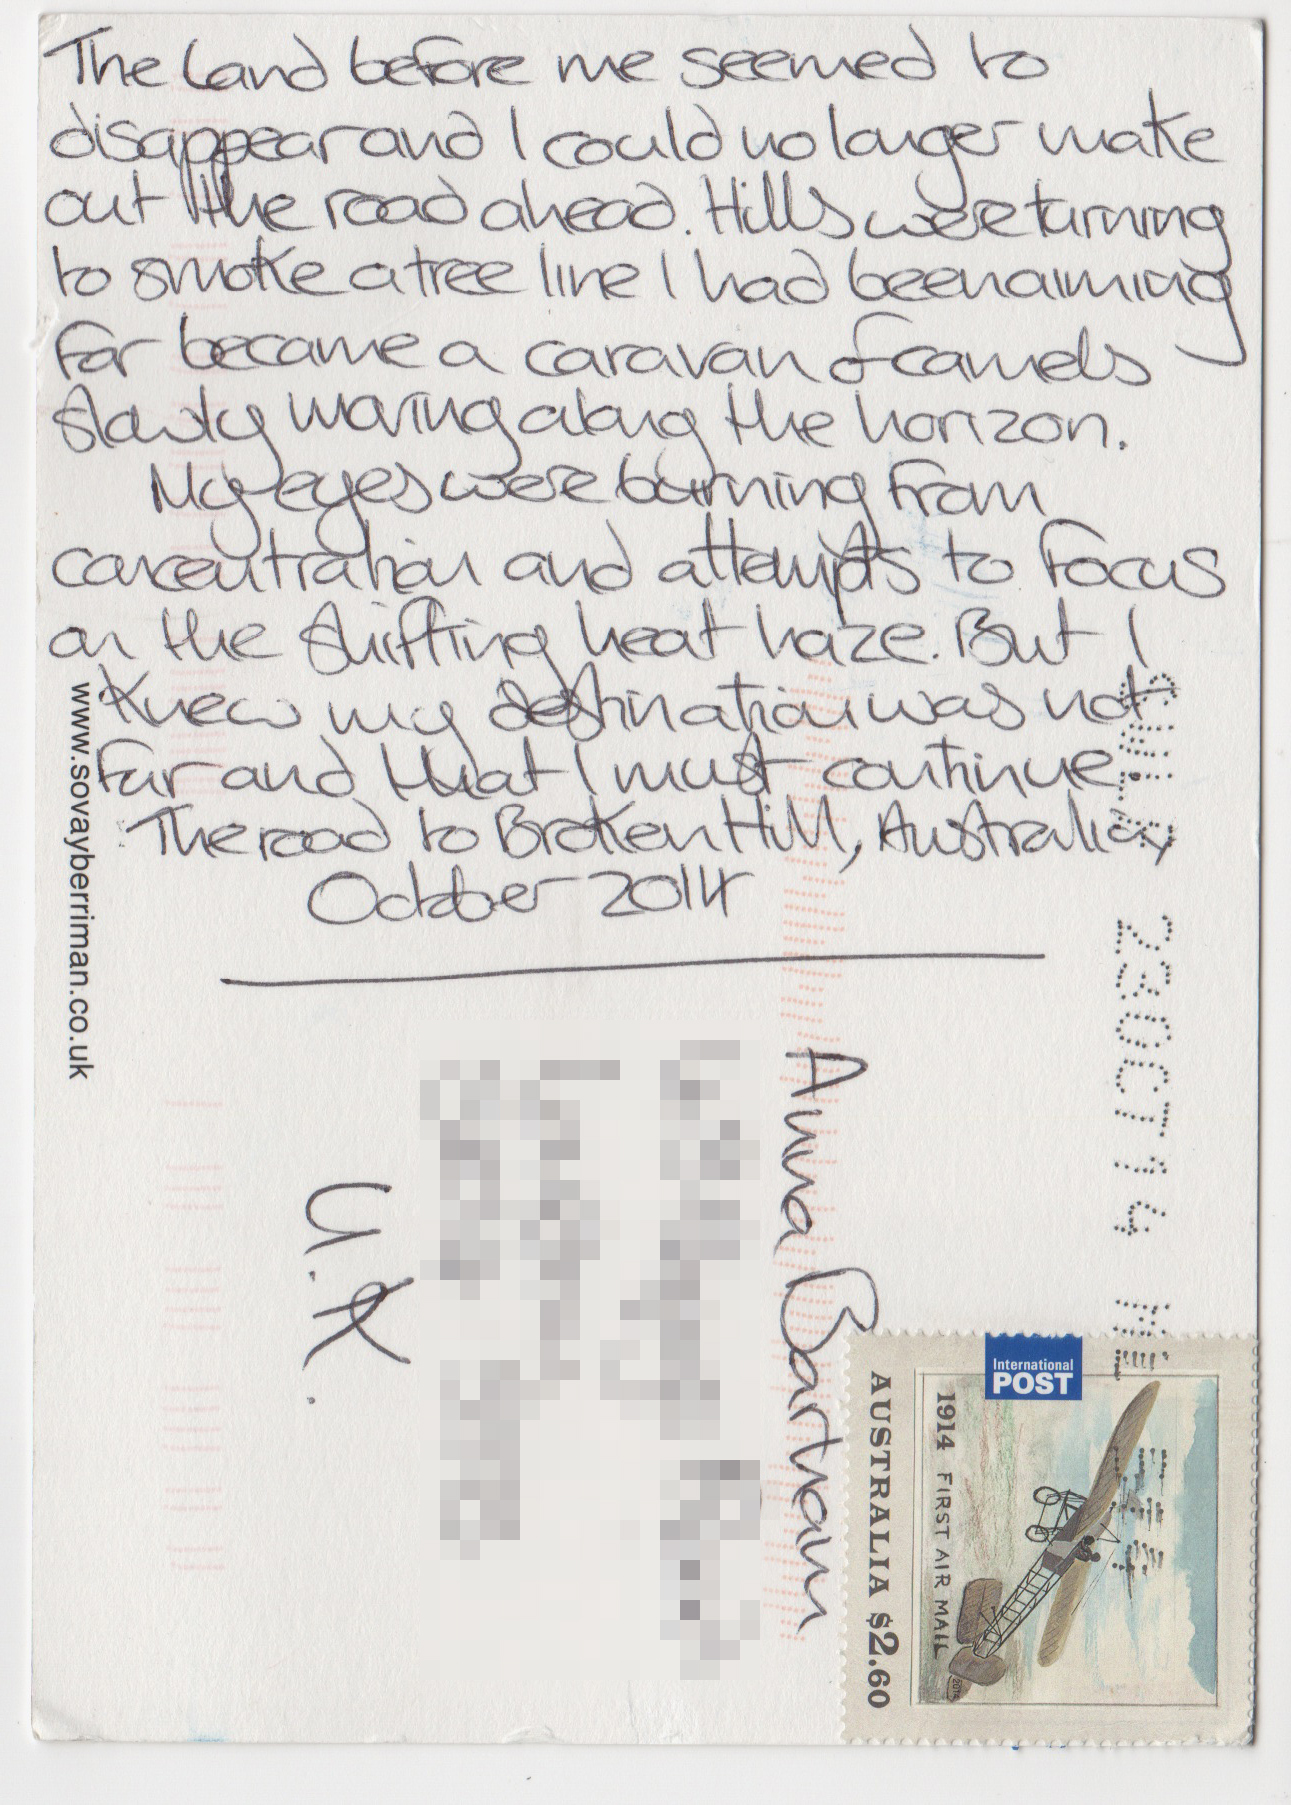 The land before me seemed to
disappear and I could no longer make
out the road ahead. Hills were turning
to smoke a tree line I had been aiming
for became a caravan of camels
slowly moving along the horizon.
My eyes were burning from
concentration and attempts to focus
on the shifting heat haze. But I
knew my destination was not
far and that I must continue.
The road to Broken Hill, Australia,
October 2014
www.sovayberriman.co.uk
Anna Bartham
U.K.
23OCT14
International
POST
AUSTRALIA $2.60
1914 FIRST AIR MAIL
2014